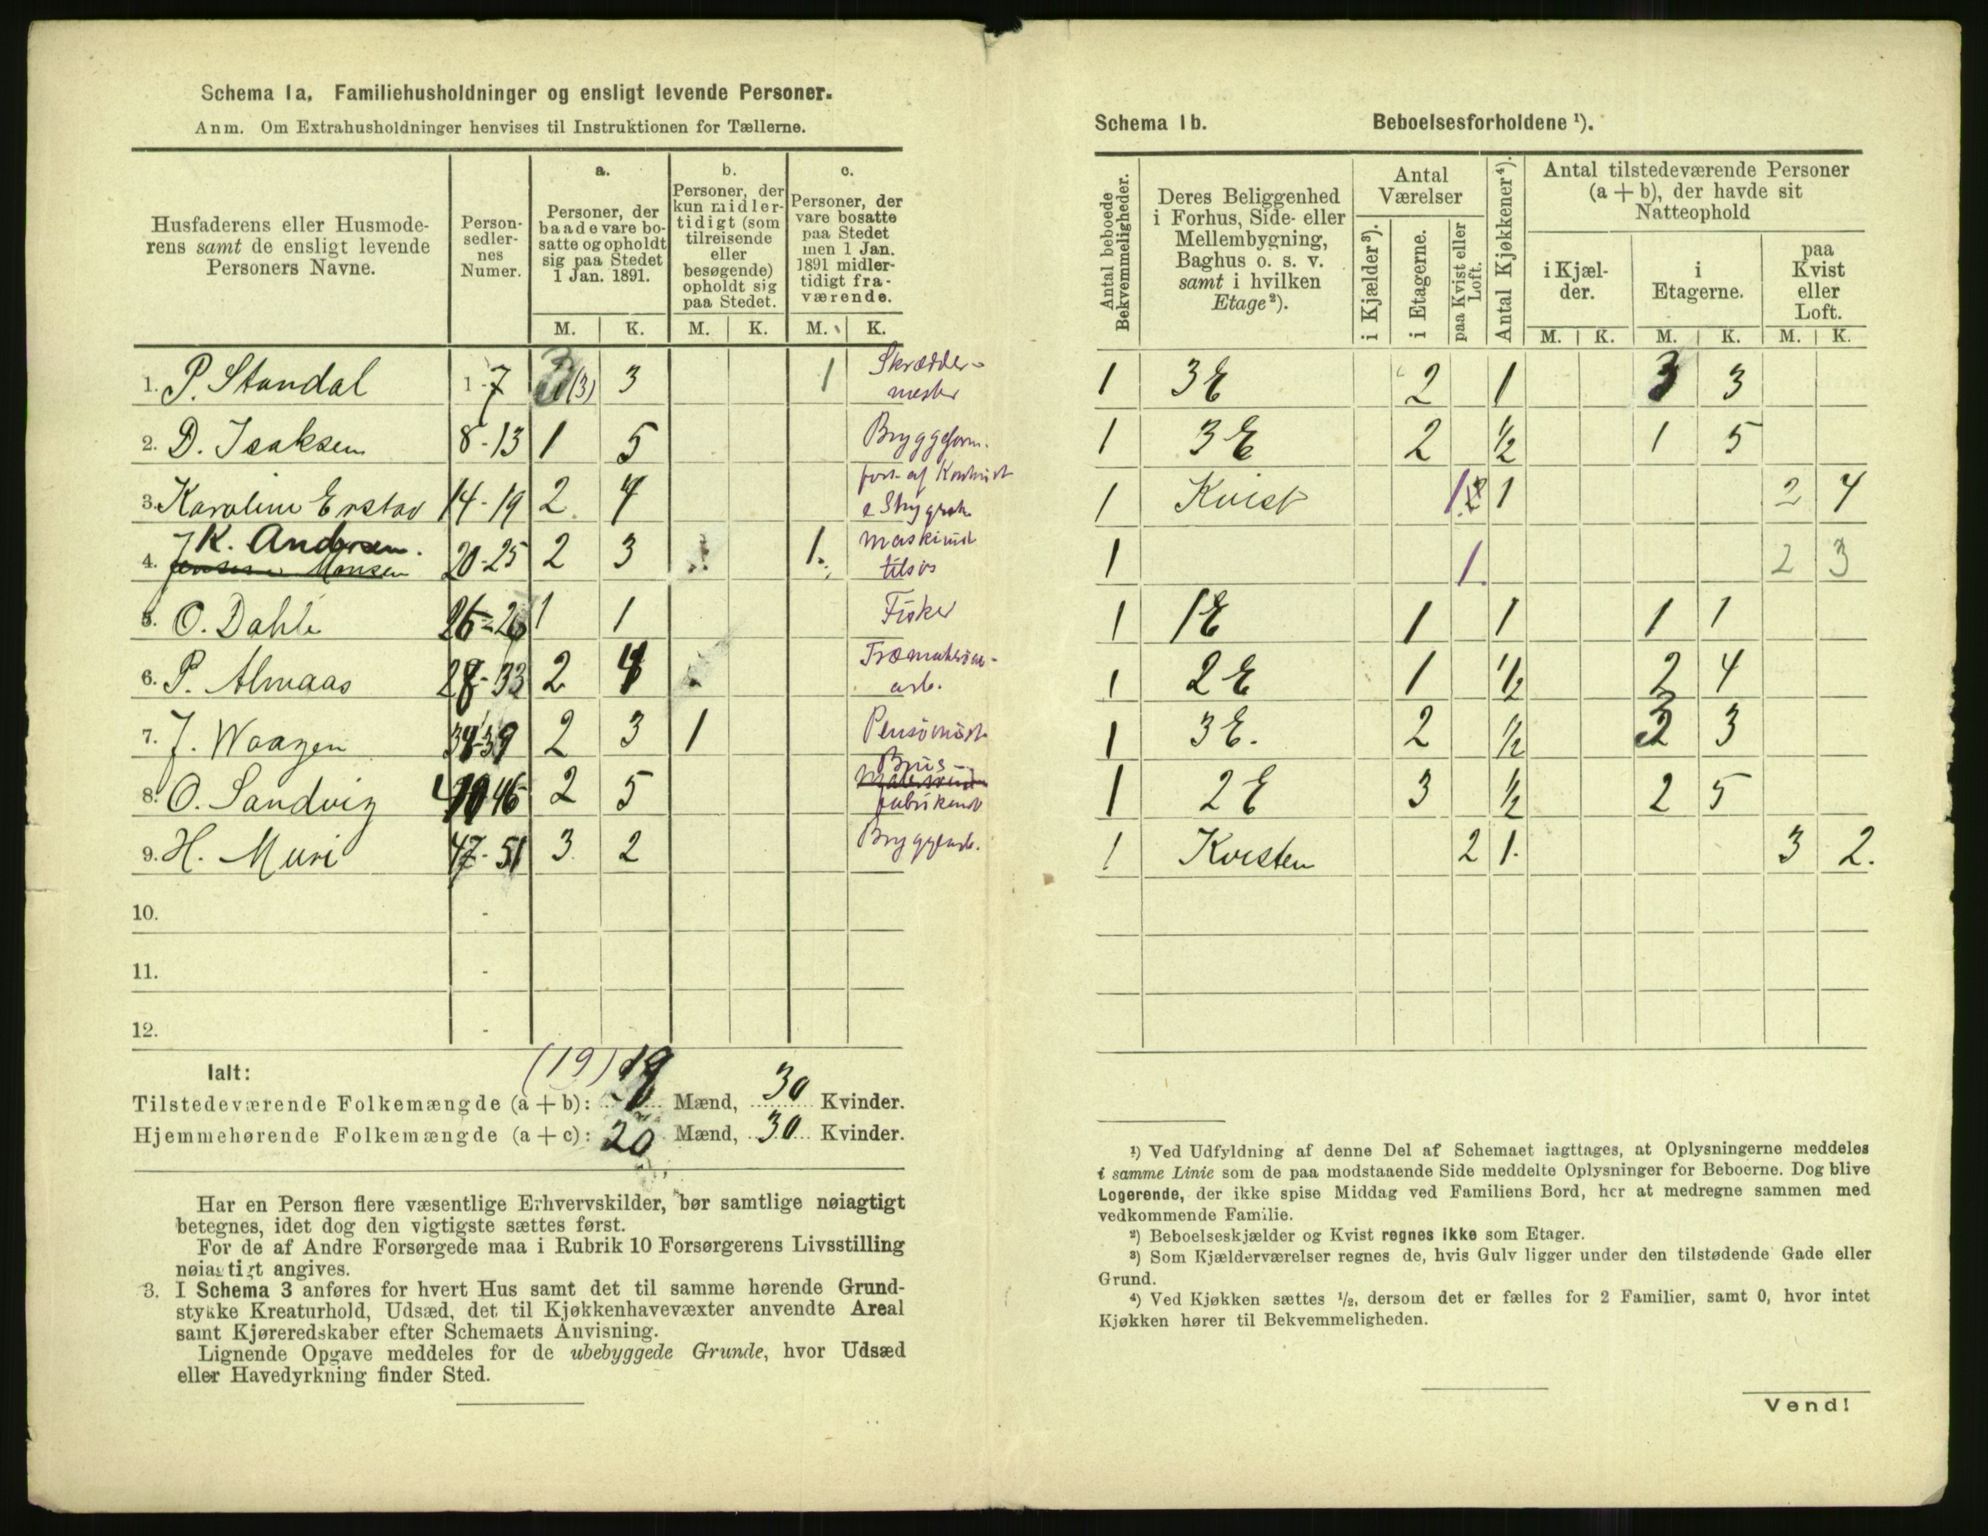 Schema 1a. Familiehusholdninger og ensligt levende Personer.
Anm. Om Extrahusholdninger henvises til Instruktionen for Tællerne.
Husfaderens eller Husmoderens samt de ensligt levende Personers Navne.
Personsedlernes Numer.
a. Personer, der baade vare bosatte og opholdt sig paa Stedet 1 Jan. 1891.
b. Personer, der kun midlertidigt (som tilreisende eller besøgende) opholdt sig paa Stedet.
c. Personer, der vare bosatte paa Stedet men 1 Jan. 1891 midlertidigt fraværende.
M. K. M. K. M. K.
1. P. Standal 1-7 (3) 3 1 Skrædder-
mester
2. D. Isaksen 8-13 1 5
3. Karoline Erstad 14-19 2 4
4. K. Andersen. 20-25 2 3 1. Maskinist
Monsen tilsøs
5. O. Dahle 1 1 Fisker
6. P. Almaas 2 4
arb.
7. J. Waagen 34-39 2 3 1 Pensionist
8. O. Sandvig 40-46 2 5 Brus-
fabrikant
9. H. Muri 47-51 3 2 Bryggearb.
10. -
11. -
12. -
Ialt: (19) 19
Tilstedeværende Folkemængde (a + b): Mænd, 30 Kvinder.
Hjemmehørende Folkemængde (a + c): 20 Mænd, 30 Kvinder.
Har en Person flere væsentlige Erhvervskilder, bør samtlige nøiagtigt
betegnes, idet dog den vigtigste sættes først.
For de af Andre Forsørgede maa i Rubrik 10 Forsørgerens Livsstilling
nøiagtigt angives.
3. I Schema 3 anføres for hvert Hus samt det til samme hørende Grund-
stykke Kreaturhold, Udsæd, det til Kjøkkenhavevæxter anvendte Areal
samt Kjøreredskaber efter Schemaets Anvisning.
Lignende Opgave meddeles for de ubebyggede Grunde, hvor Udsæd
eller Havedyrkning finder Sted.
Schema 1b. Beboelsesforholdene ¹).
Antal beboede Bekvemmeligheder.
Deres Beliggenhed i Forhus, Side- eller Mellembygning, Baghus o. s. v. samt i hvilken Etage ²).
Antal Værelser
i Kjælder ³).
i Etagerne.
paa Kvist eller Loft.
Antal Kjøkkener ⁴).
Antal tilstedeværende Personer (a + b), der havde sit Natteophold
i Kjælder.
i Etagerne.
paa Kvist eller Loft.
M. K. M. K. M. K.
1 3 E 2 1 3 3
1 3 E 2 ½ 1 5
1 Kvist 1 1 2 4
1 1. 2 3
1 1 E 1 1 1 1
1 2 E 1 ½ 2 4
1 3 E. 2 ½ 3 3
1 2 E 3 ½ 2 5
1 Kvisten 2 1. 3 2.
¹) Ved Udfyldning af denne Del af Schemaet iagttages, at Oplysningerne meddeles
i samme Linie som de paa modstaaende Side meddelte Oplysninger for Beboerne. Dog blive
Logerende, der ikke spise Middag ved Familiens Bord, her at medregne sammen med
vedkommende Familie.
²) Beboelseskjælder og Kvist regnes ikke som Etager.
³) Som Kjælderværelser regnes de, hvis Gulv ligger under den tilstødende Gade eller
Grund.
⁴) Ved Kjøkken sættes ½, dersom det er fælles for 2 Familier, samt 0, hvor intet
Kjøkken hører til Bekvemmeligheden.
Vend!